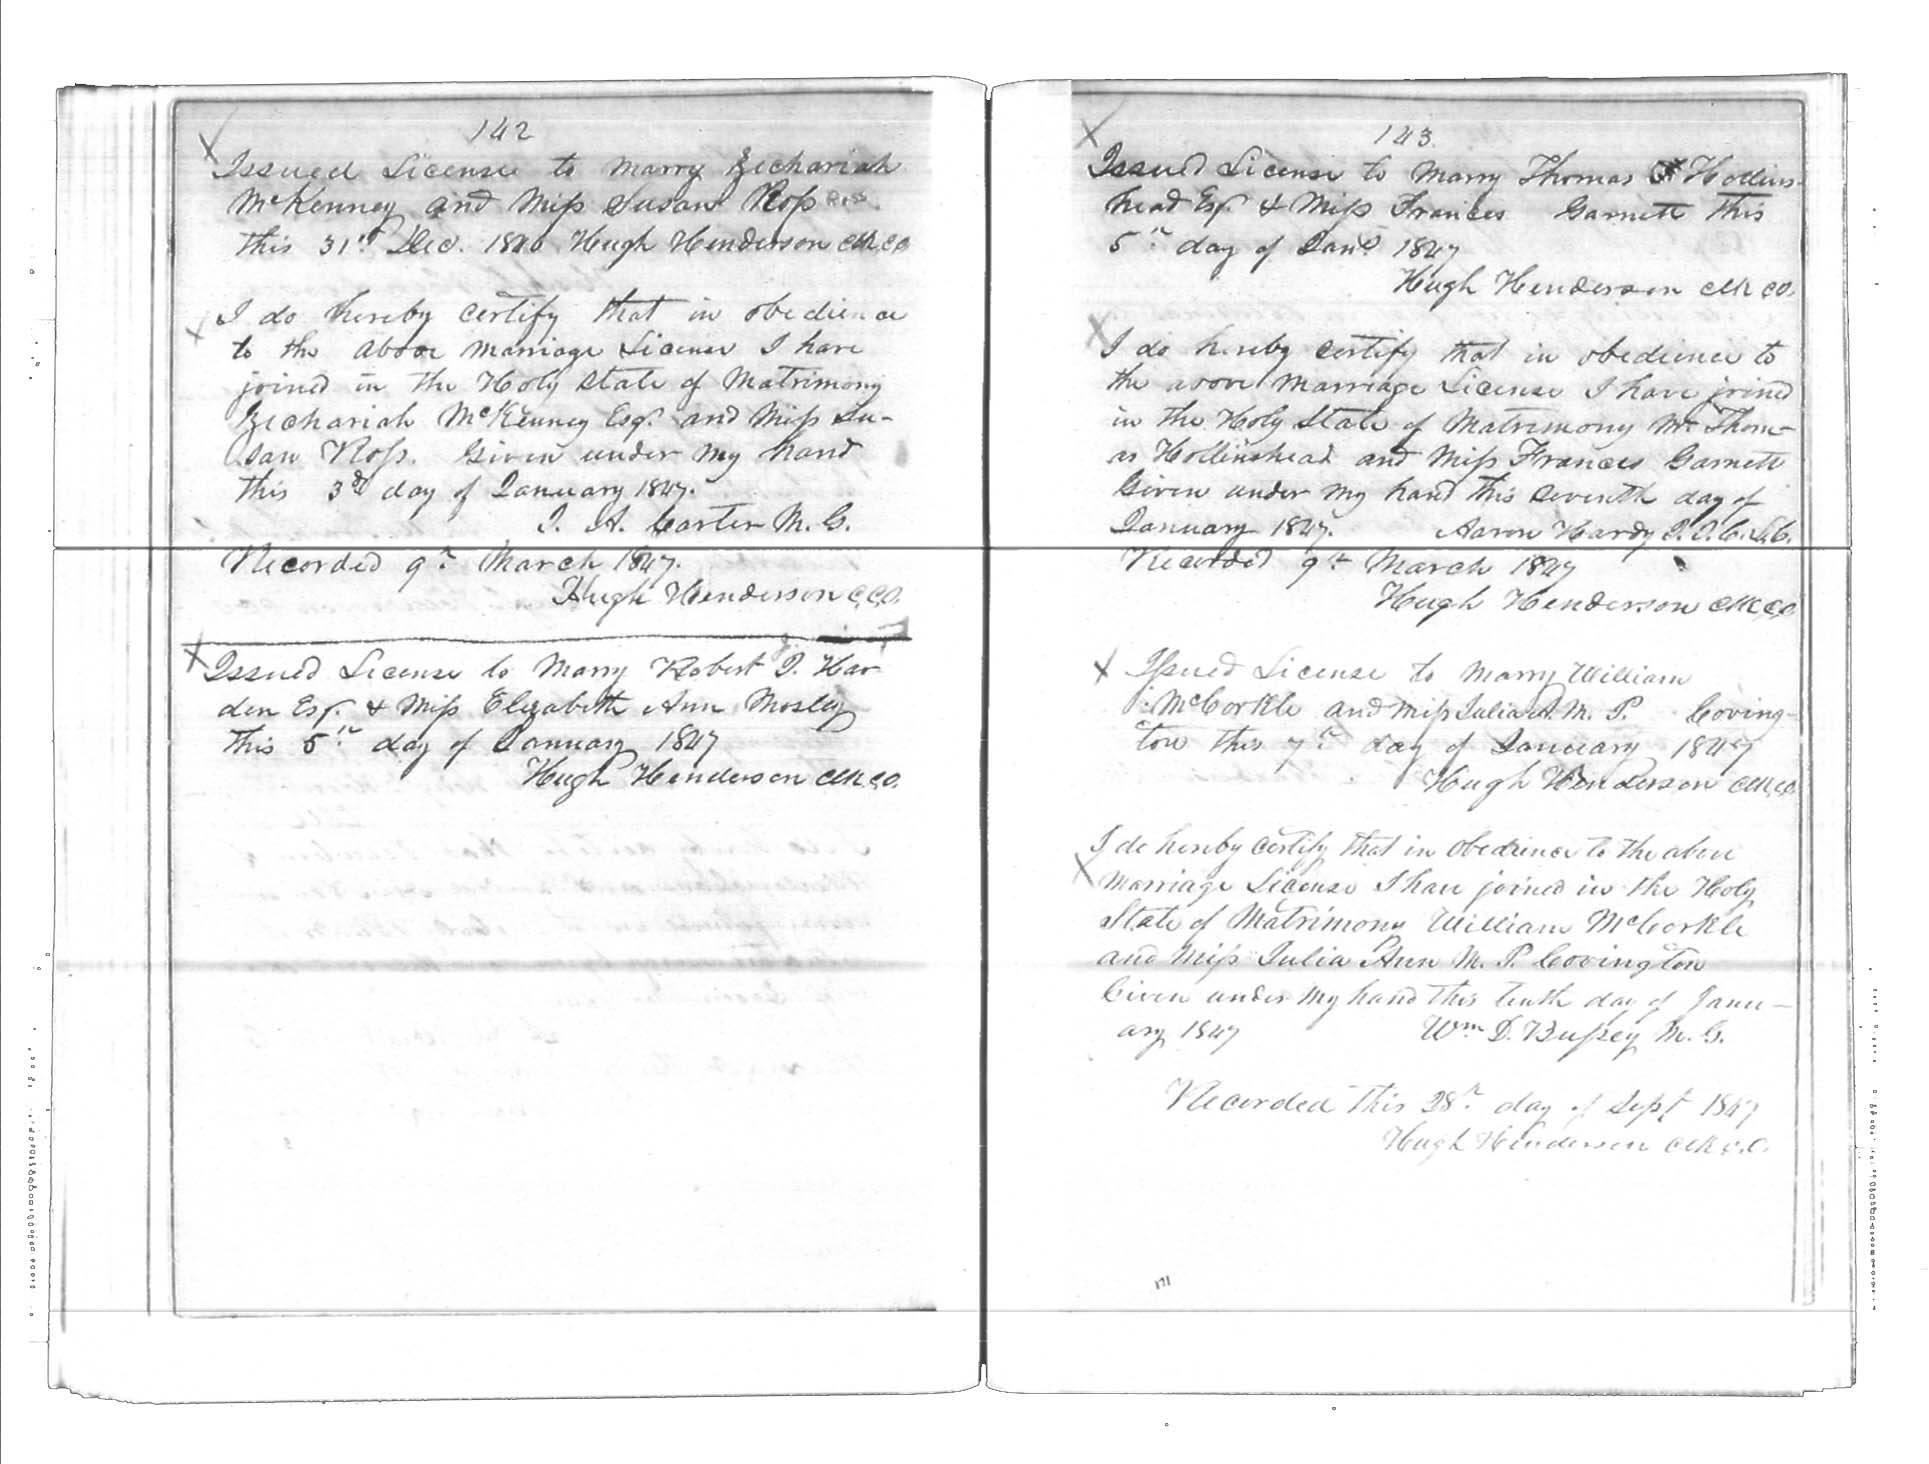 142
Issued License to Marry Zechariah
McKenney and Miss Susan Ross Ross
this 31st Dec. 1846 Hugh Henderson Clk C.O.
I do hereby certify that in obedience
to the above Marriage License I have
joined in the Holy State of Matrimony
Zechariah McKenney Esqr. and Miss Su-
san Ross. Given under my hand
this 3d day of January 1847.
J. A. Carter M. G.
Recorded 9th March 1847.
Hugh Henderson C.C.O.
Issued License to Marry Robert J. Har
den Esqr. & Miss Elizabeth Ann Mosley
this 5th day of January 1847
Hugh Henderson Clk C.O.
143
Issued License to Marry Thomas Hollins-
head Esqr. & Miss Frances Garnett this
5th day of Jany. 1847
Hugh Henderson Clk C.O.
I do hereby certify that in obedience to
the above Marriage License I have joined
in the Holy State of Matrimony Mr Thom-
as Hollinshead and Miss Frances Garnett
Given under my hand this seventh day of
January 1847. Aaron Hardy J. I. C. L. C.
Recorded 9th March 1847
Hugh Henderson Clk C.O.
Issued License to Marry William
McCorkle and Miss Julia A. M. P. Coving-
ton this 7th day of January 1847
Hugh Henderson Clk C.O.
I do hereby certify that in obedience to the above
Marriage License I have joined in the Holy
State of Matrimony William McCorkle
and Miss Julia Ann M. P. Covington
Given under my hand this tenth day of Janu-
ary 1847 Wm D. Bussey M. G.
Recorded this 28th day of Sept 1847
Hugh Henderson Clk C.O.